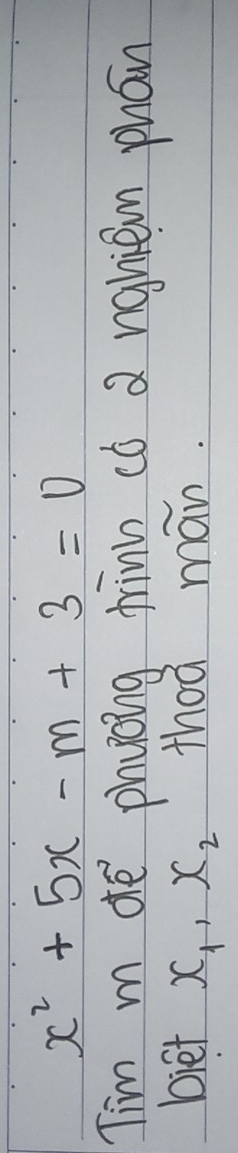 x² + 5x - m + 3 = 0
Tìm m để phương trình có 2 nghiệm phân
biệt x₁, x₂ thoả mãn.